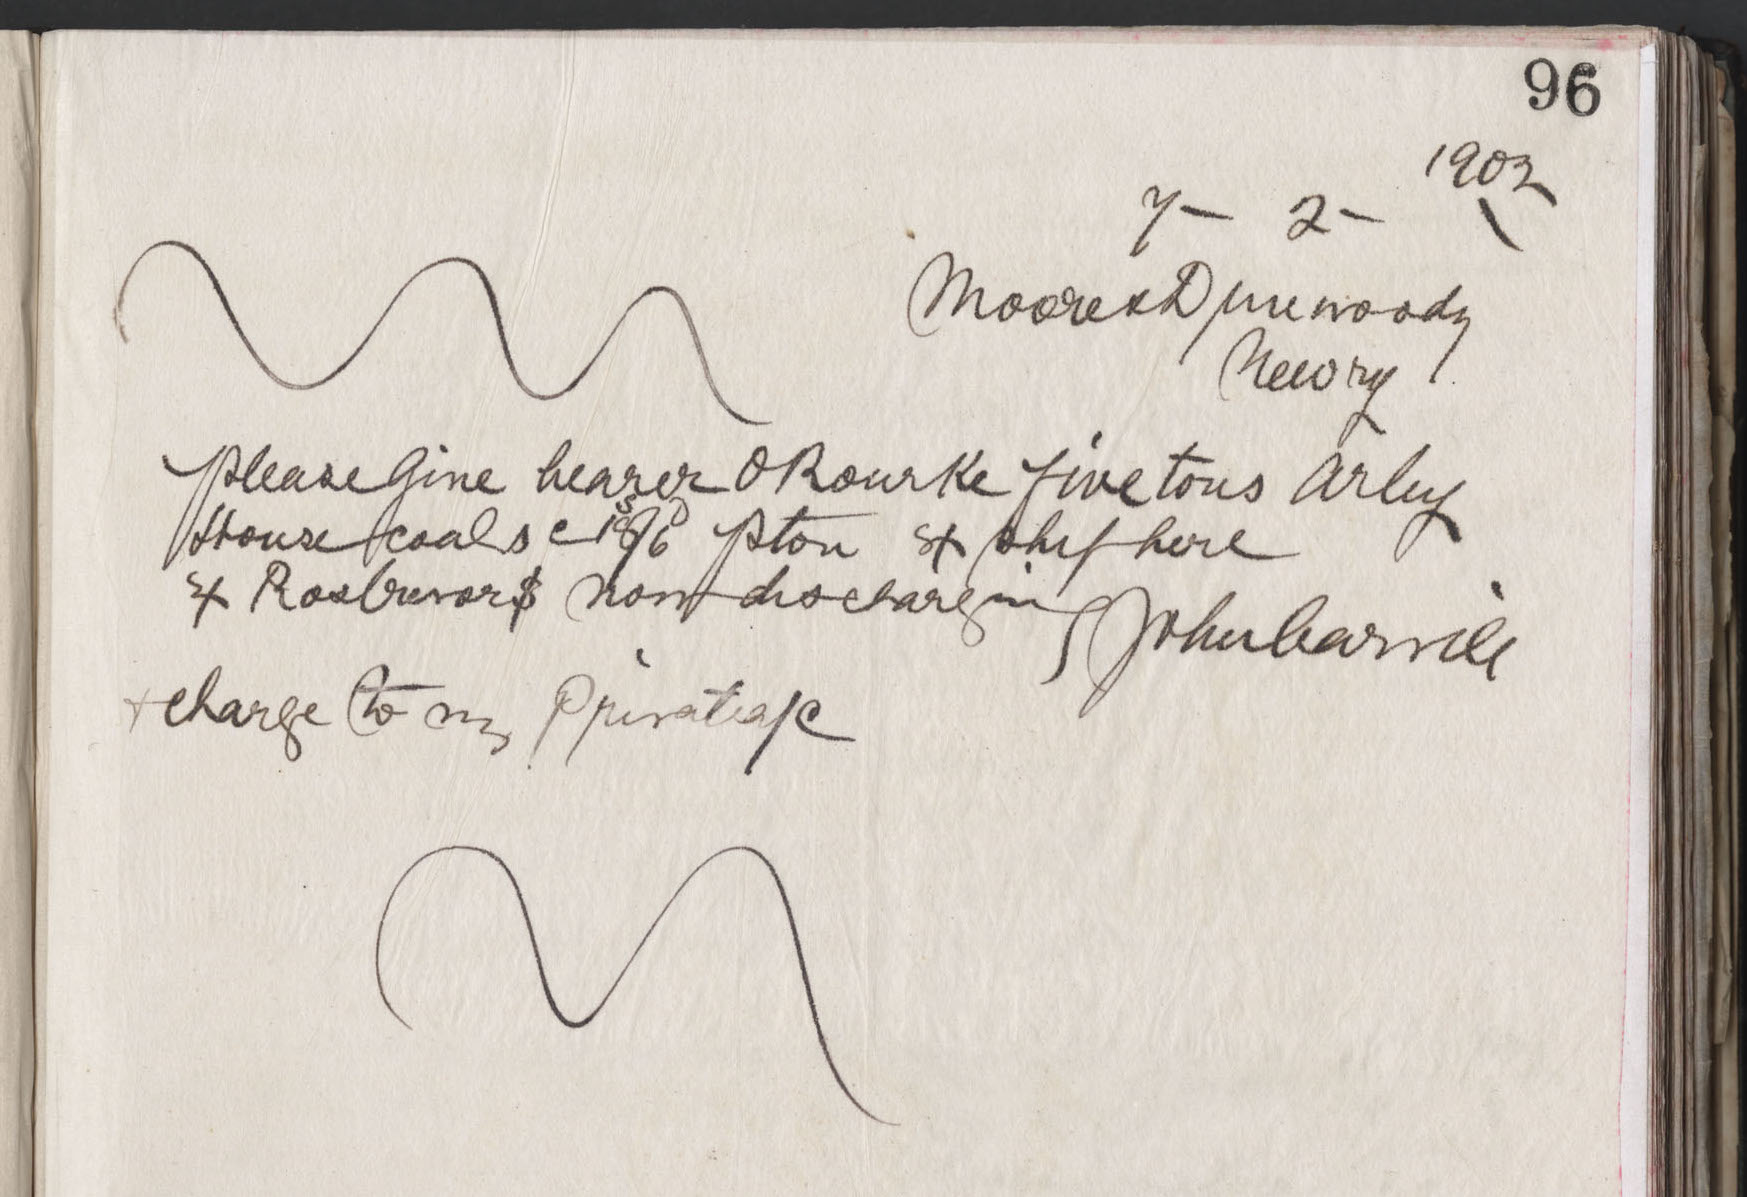 96
7 - 2 - 1902
Moore & D
Newry
please Give bearer O Rourke five tons Arley
House coals @ 18s/6d p ton ex ship here
ex Rostrevor now dischargin
John Carvill
+ charge to my Private a/c